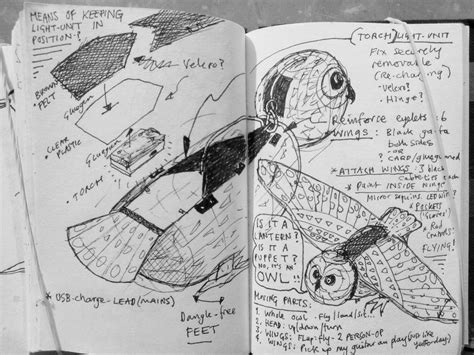 MEANS OF KEEPING
LIGHT-UNIT IN
POSITION?
Velcro?
BROWN
FELT
Gluegun
CLEAR
PLASTIC
Gluegun
TORCH
* USB-charge-LEAD (MAINS)
Dangle-free
FEET
TORCH/LIGHT-UNIT
Fix securely
removable
(Re-charging)
- Velcro?
- Hinge?
Reinforce eyelets: 6
WINGS: Black
both sides
OR
CARD/gluegunned
* ATTACH WINGS: 3 black
* Paint INSIDE wings
Mirror sequins
* POCKETS
Rod
controls
FLYING!
IS IT A
LANTERN?
IS IT A
PUPPET?
NO, IT'S AN
OWL
MOVING PARTS:
1. Whole owl - Fly/land/sit...
2. HEAD: up/down/turn
3. WINGS: Flap: fly - 2 PERSON-OP
4. WINGS: Pick up my guitar an play (just like
yesterday)